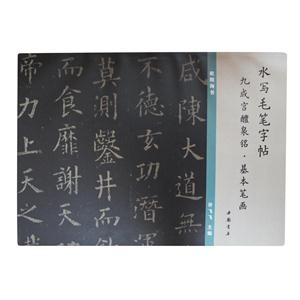 水写毛笔字帖
九成宫醴泉铭·基本笔画
咸陳大道無
不德玄功潛
莫測鑿井而
而食靡謝天
帝力上天之